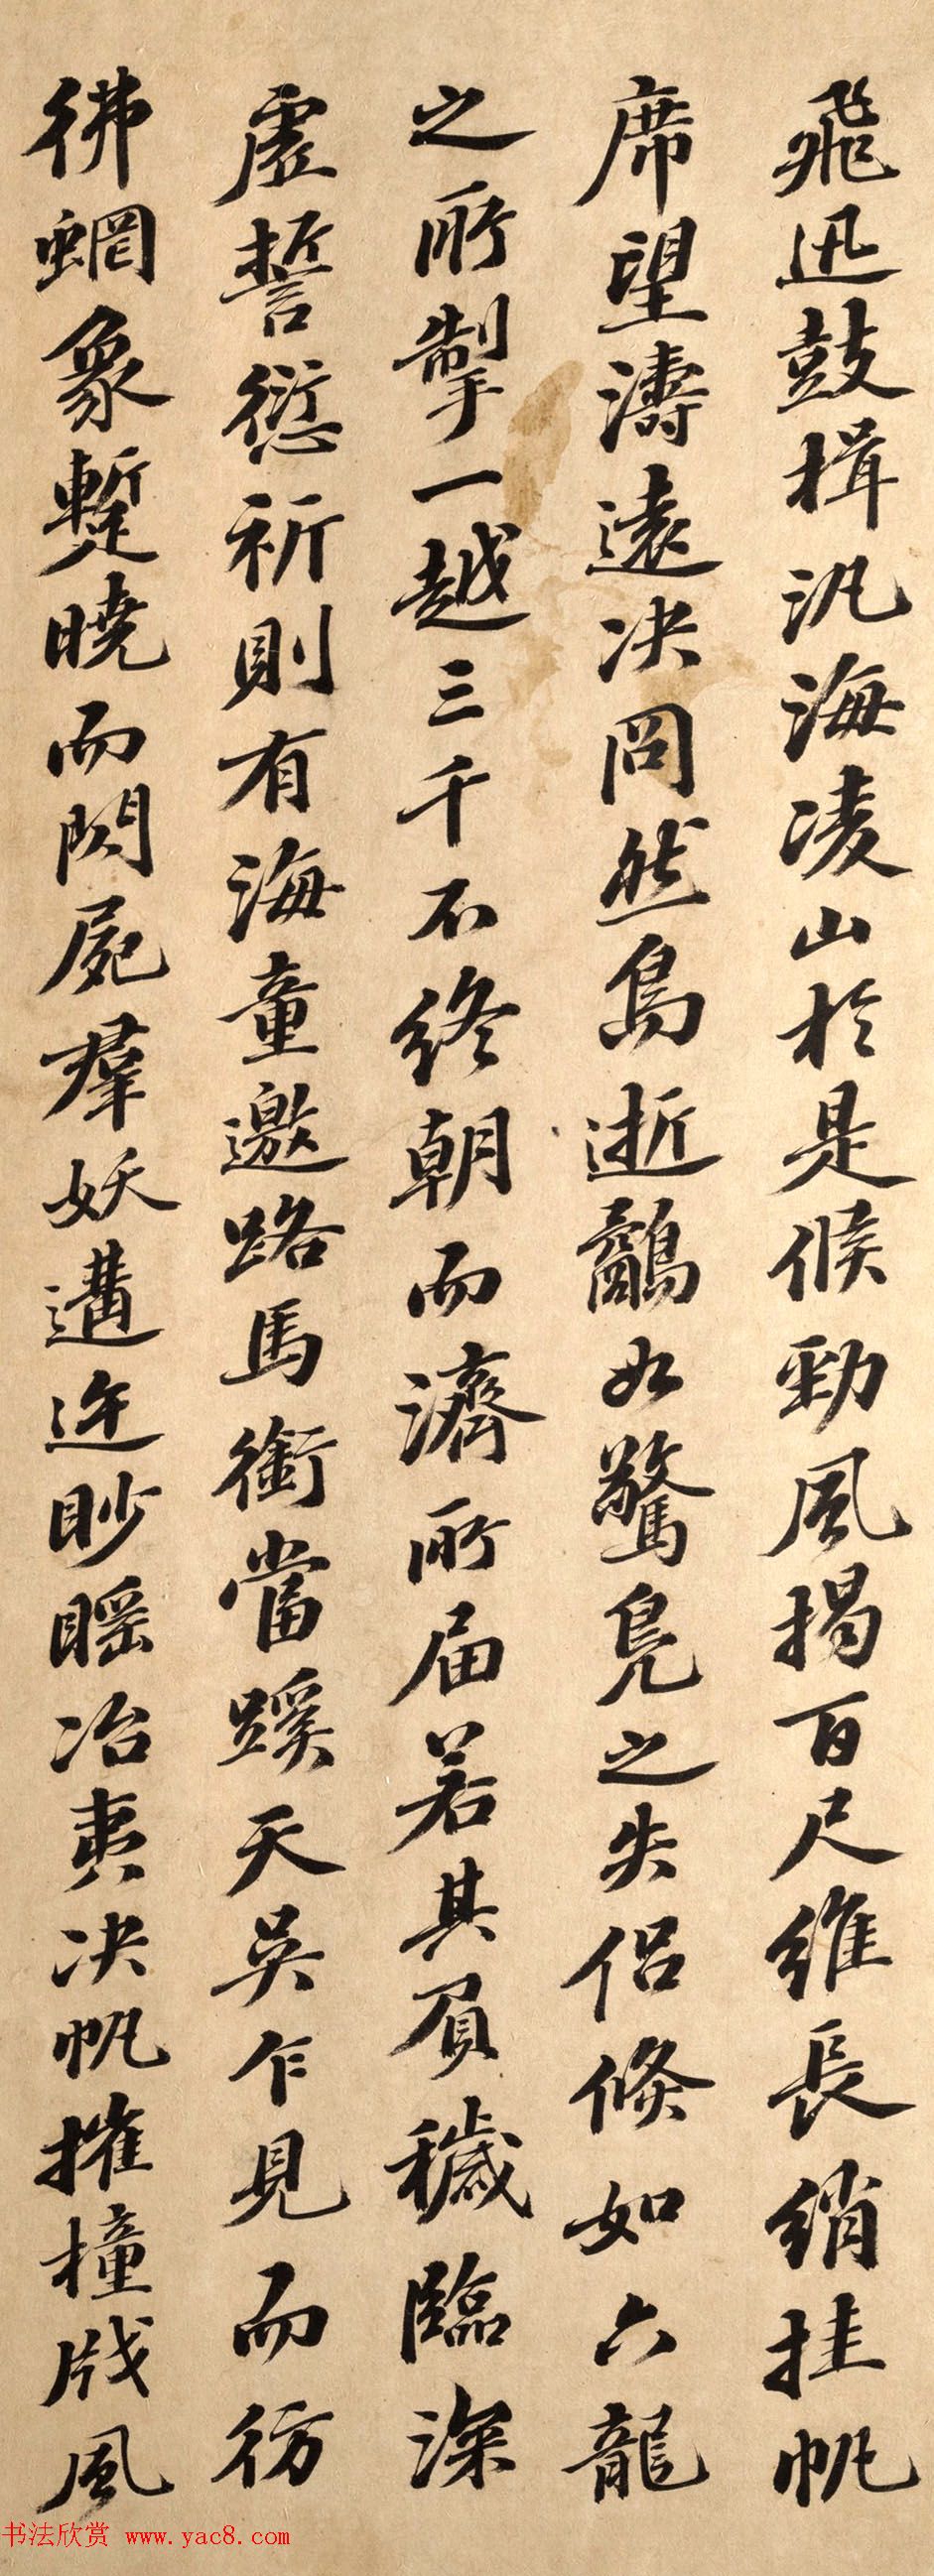 飛迅鼓楫汎海凌山於是候勁風揭百尺維長綃挂帆
席望濤遠决冏然鳥逝鷸如驚鳧之失侶倏如六龍
之所掣一越三千不終朝而濟所屆若其負穢臨深
虛誓愆祈則有海童邀路馬銜當蹊天吳乍見而彷
彿蝄象暫曉而閃屍羣妖遘迕眇䁘冶夷决帆摧橦戕風
书法欣赏 www.yac8.com